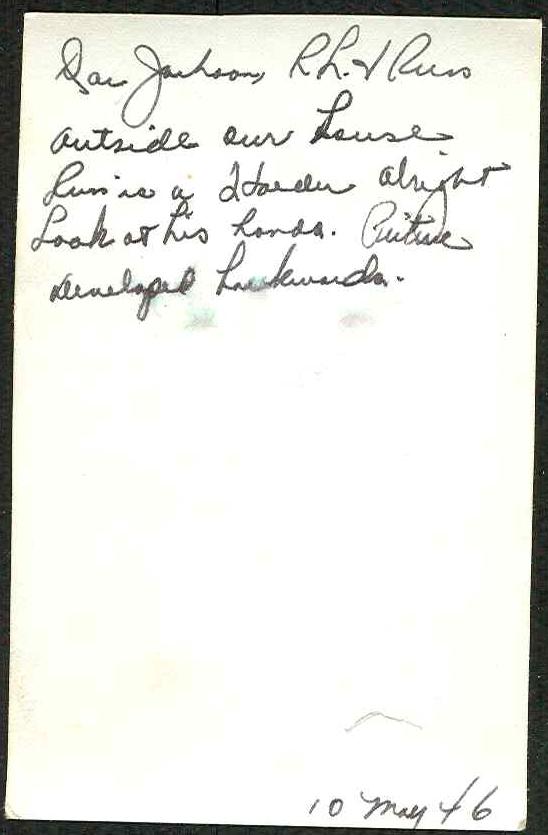 Jackson, R.L. & Russ
outside our house
Russ is a alright
Look at his hands. Picture
developed backwards.
10 May 46